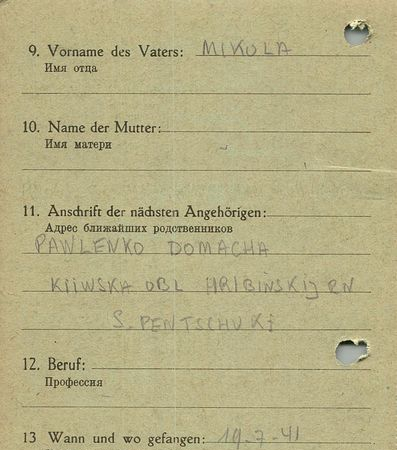 9. Vorname des Vaters: MIKOLA
Имя отца
10. Name der Mutter:
Имя матери
11. Anschrift der nächsten Angehörigen:
Адрес ближайших родственников
PAWLENKO DOMACHA
KIIWSKA OBL HRIBINSKIJ RN
S. PENTSCHUKI
12. Beruf:
Профессия
13 Wann und wo gefangen: 19-7-41